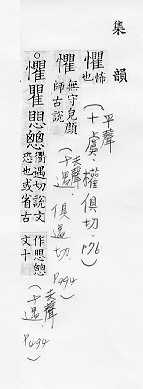 集韻
懼 怖
也
(平聲
十虞、權俱切. P.76)
懼 無守皃顏
師古說
(去聲
十遇、俱遇切. P.494)
○懼瞿思愳 衢遇切說文
恐也或省古
文作思愳
文十
(去聲
十遇 P.494)